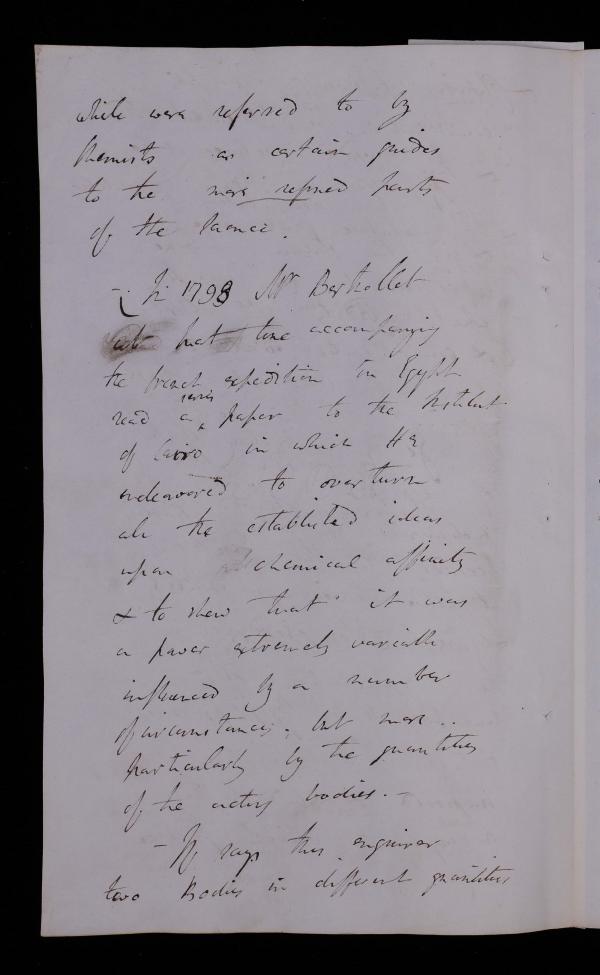 while were referred to by
Chemists as certain guides
to the more refined parts
of the Science.
- In 1798 Mr Berthollet
at that time accompanying
the french expedition in Egypt
series
read a paper to the Institut
of Cairo in which He
endeavored to overturn
all the established ideas
upon chemical affinity
& to shew that it was
a power extremely variable
influenced by a number
of circumstances, but more ..
particularly by the quantities
of the acting bodies. -
- If says this enquirer
two Bodies in different quantities